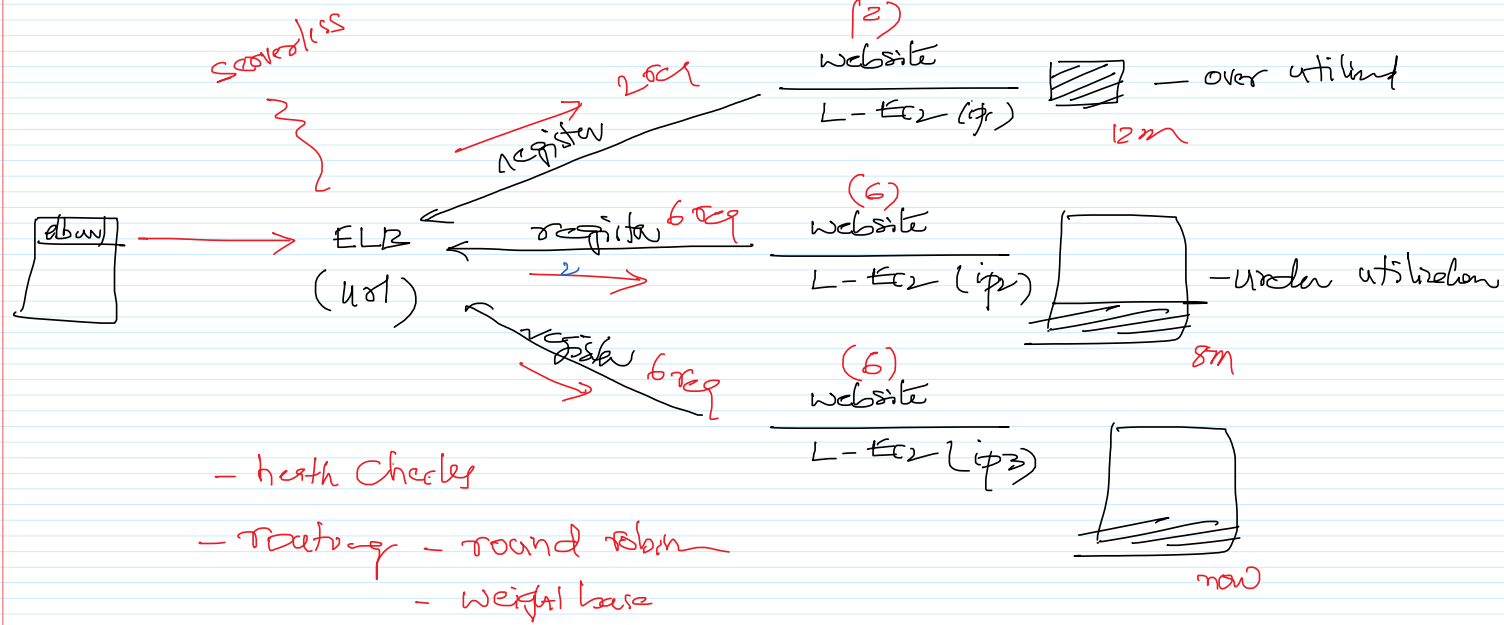 serverless
2 req
register
(2)
website
L-EC2 (ip1)
- over utilized
12m
elburl
ELB
(url)
register
6 req
2
(6)
website
L-EC2 (ip2)
- under utilization
8m
register
6 req
(6)
website
L-EC2 (ip3)
now
- heath Checks
- routing - round robin
- weight base